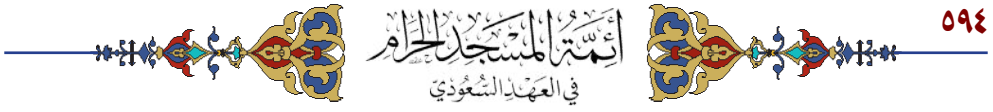 ٥٩٤
أئمة المسجد الحرام
في العهد السعودي